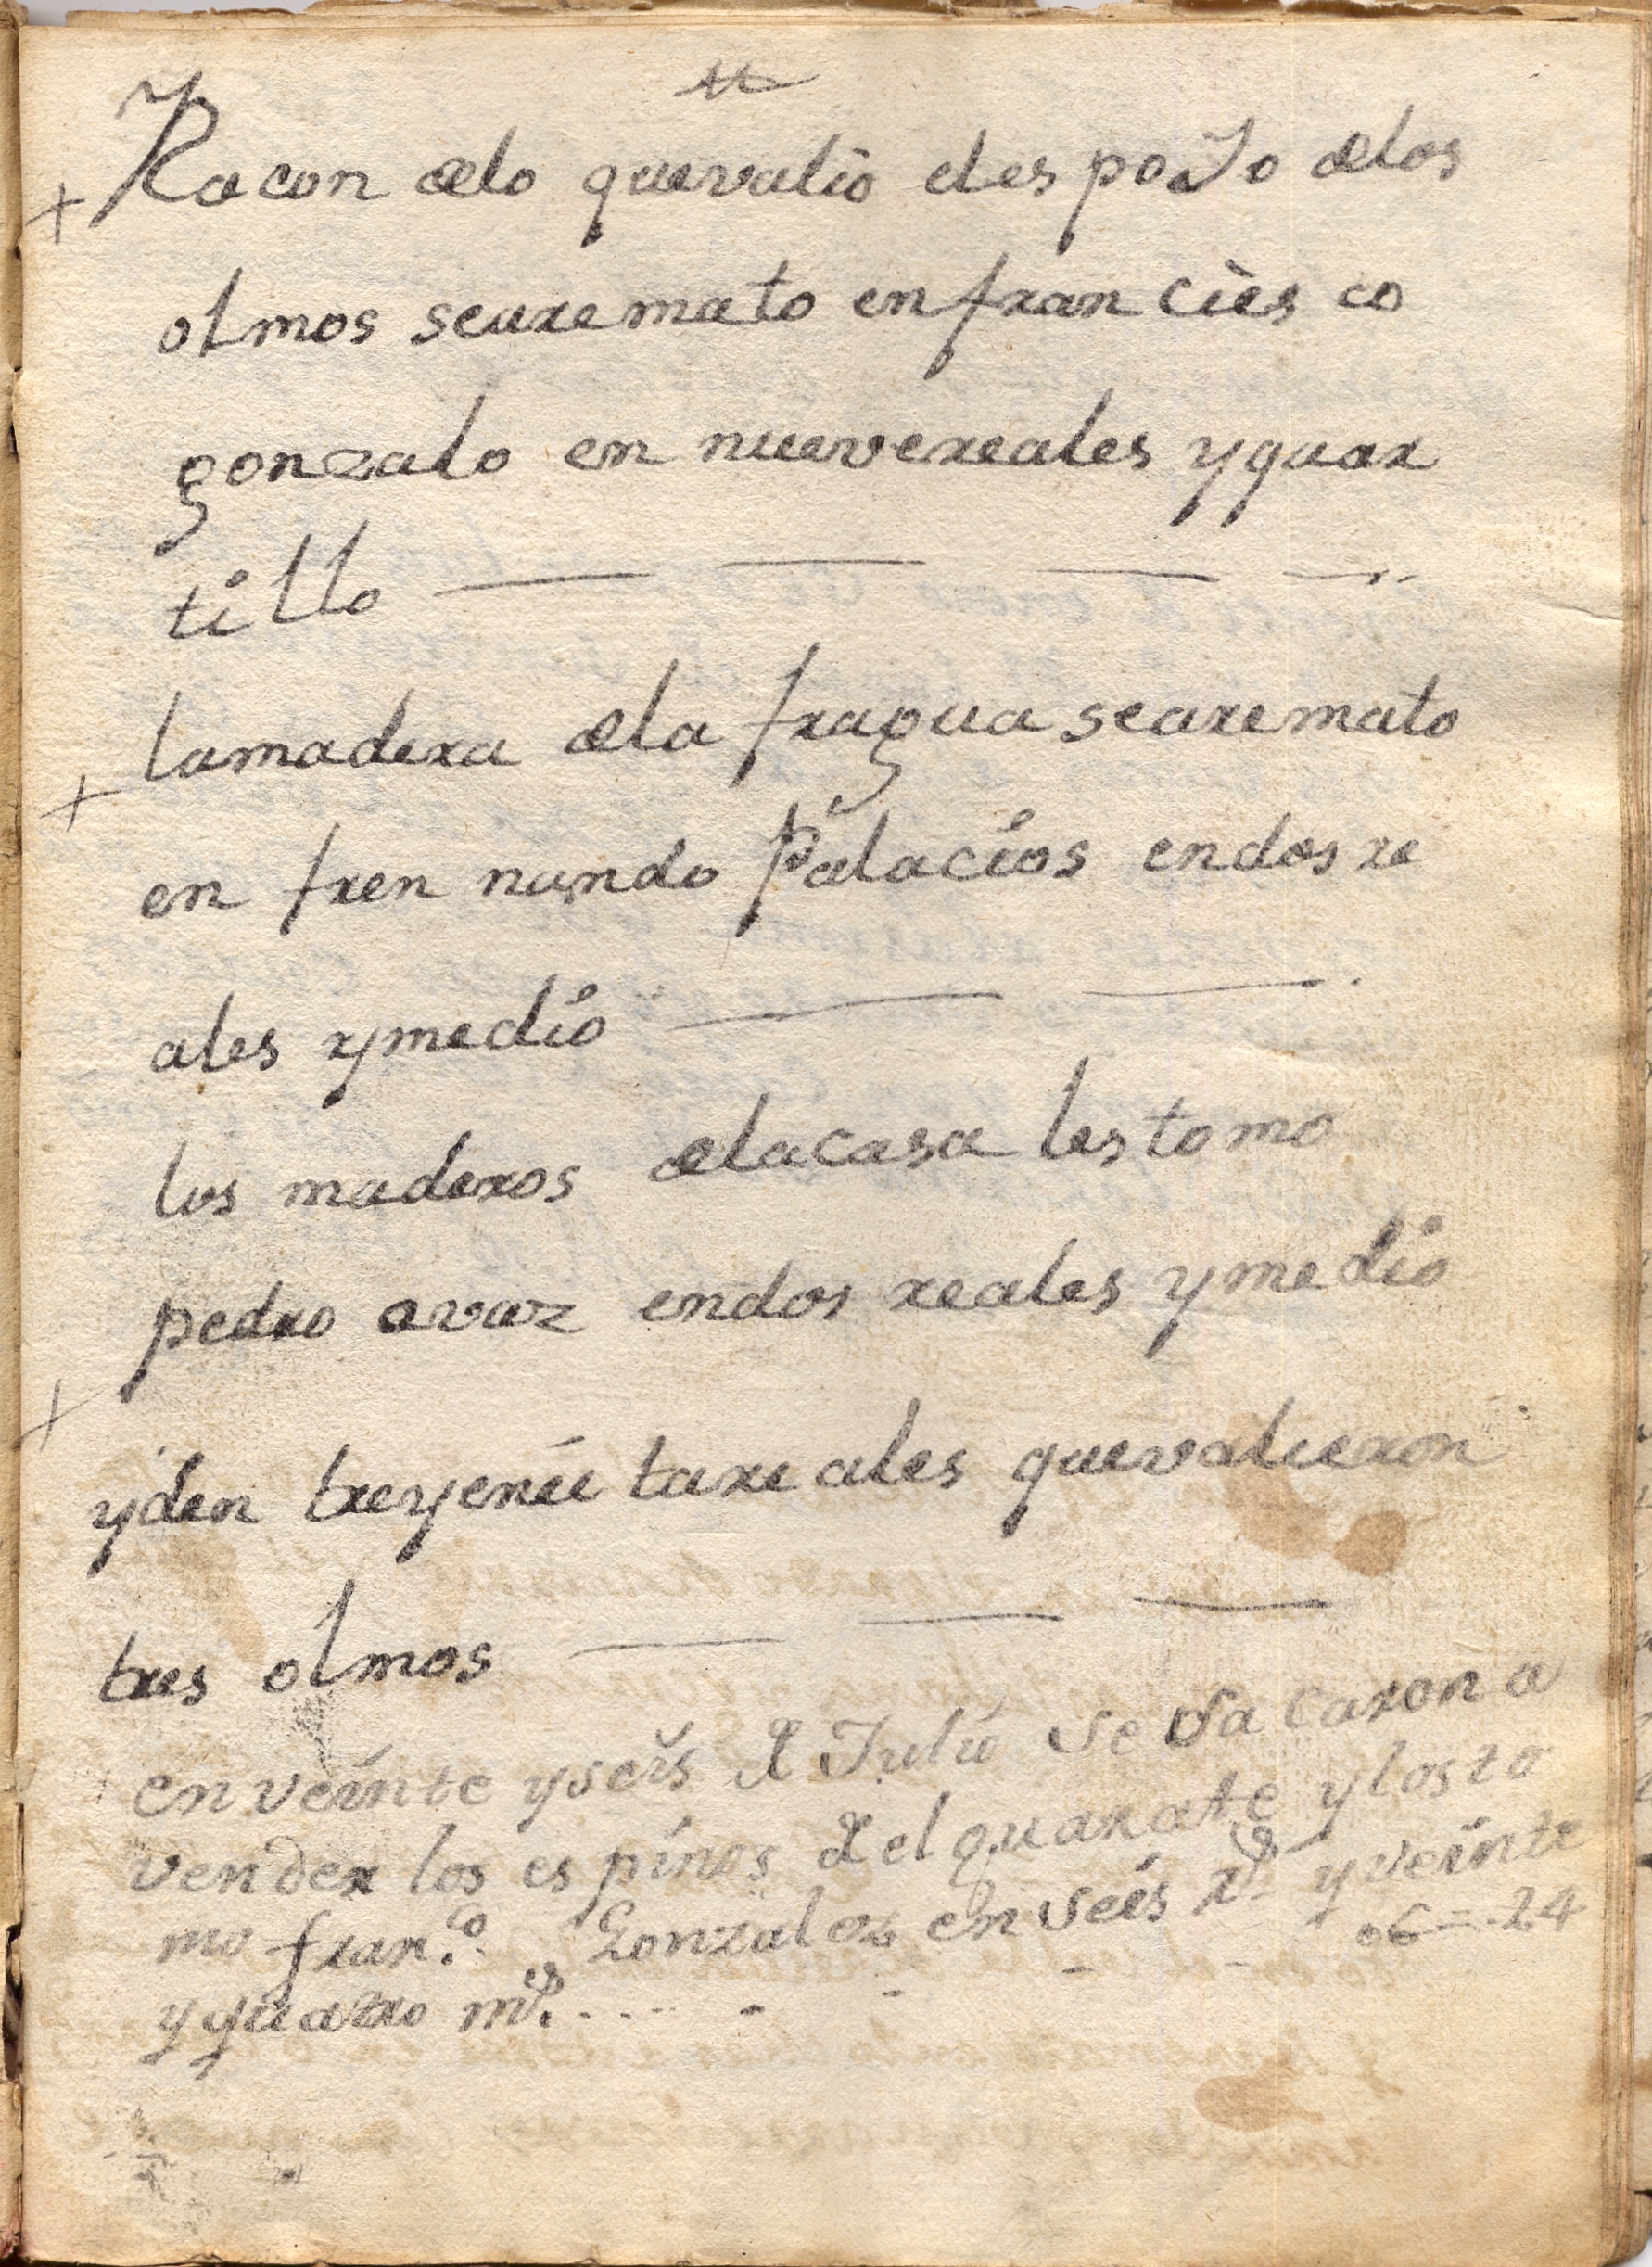 Racon delo quevalio eles poJo delos
olmos searemato enfrancies co
gonzalo en nuevereales yquar
tillo
lamadera dela fragua searemato
en fren nando Palacios endos re
ales ymedio
los maderos delacasa les tomo
pedro avaz endos reales ymedio
yden treyenei tareales quevalieron
tres olmos
en veinte yseis de Julio se sa caron a
vender los es pinos del quarate ylos to
mo fran.co Gonzalez en seis rs yveinte
06=24
yquatro ms.